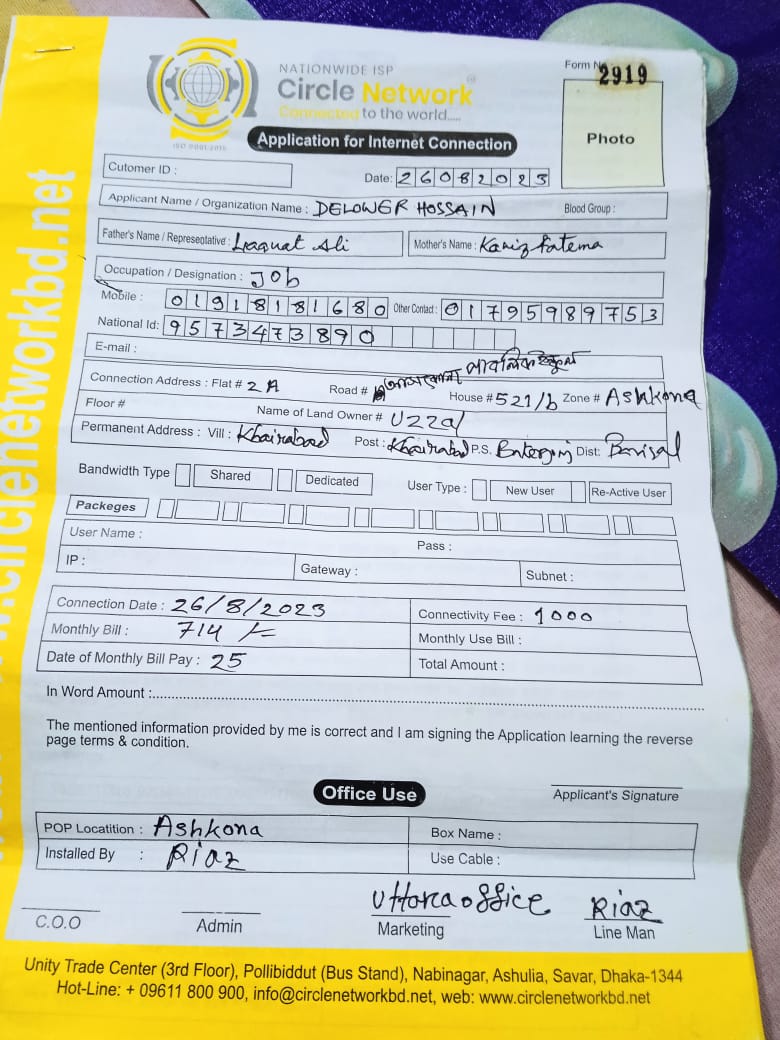 NATIONWIDE ISP
Circle Network
Connected to the world.....
ISO 9001:2015
Form No
2919
Photo
Application for Internet Connection
Cutomer ID :
Date: 26082023
Applicant Name / Organization Name : DELOWER HOSSAIN Blood Group :
Father's Name / Representative : Liaquat Ali Mother's Name : Kaniz fatema
Occupation / Designation : Job
Mobile : 01918181680 Other Contact : 01795989753
National Id: 9573473890
E-mail :
Connection Address : Flat # 2A Road # পাবলিক স্কুল House # 521/b Zone # Ashkona
Floor # Name of Land Owner # Uzzal
Permanent Address : Vill : Khairabad Post : Khairabad P.S. Dist: Barisal
Bandwidth Type Shared Dedicated User Type : New User Re-Active User
Packeges
User Name : Pass :
IP : Gateway : Subnet :
Connection Date : 26/8/2023 Connectivity Fee : 1000
Monthly Bill : 714 /= Monthly Use Bill :
Date of Monthly Bill Pay : 25 Total Amount :
In Word Amount :
The mentioned information provided by me is correct and I am signing the Application learning the reverse
page terms & condition.
Applicant's Signature
Office Use
POP Locatition : Ashkona Box Name :
Installed By : Riaz Use Cable :
Uttara office Riaz
C.O.O Admin Marketing Line Man
Unity Trade Center (3rd Floor), Pollibiddut (Bus Stand), Nabinagar, Ashulia, Savar, Dhaka-1344
Hot-Line: + 09611 800 900, info@circlenetworkbd.net, web: www.circlenetworkbd.net
www.circlenetworkbd.net